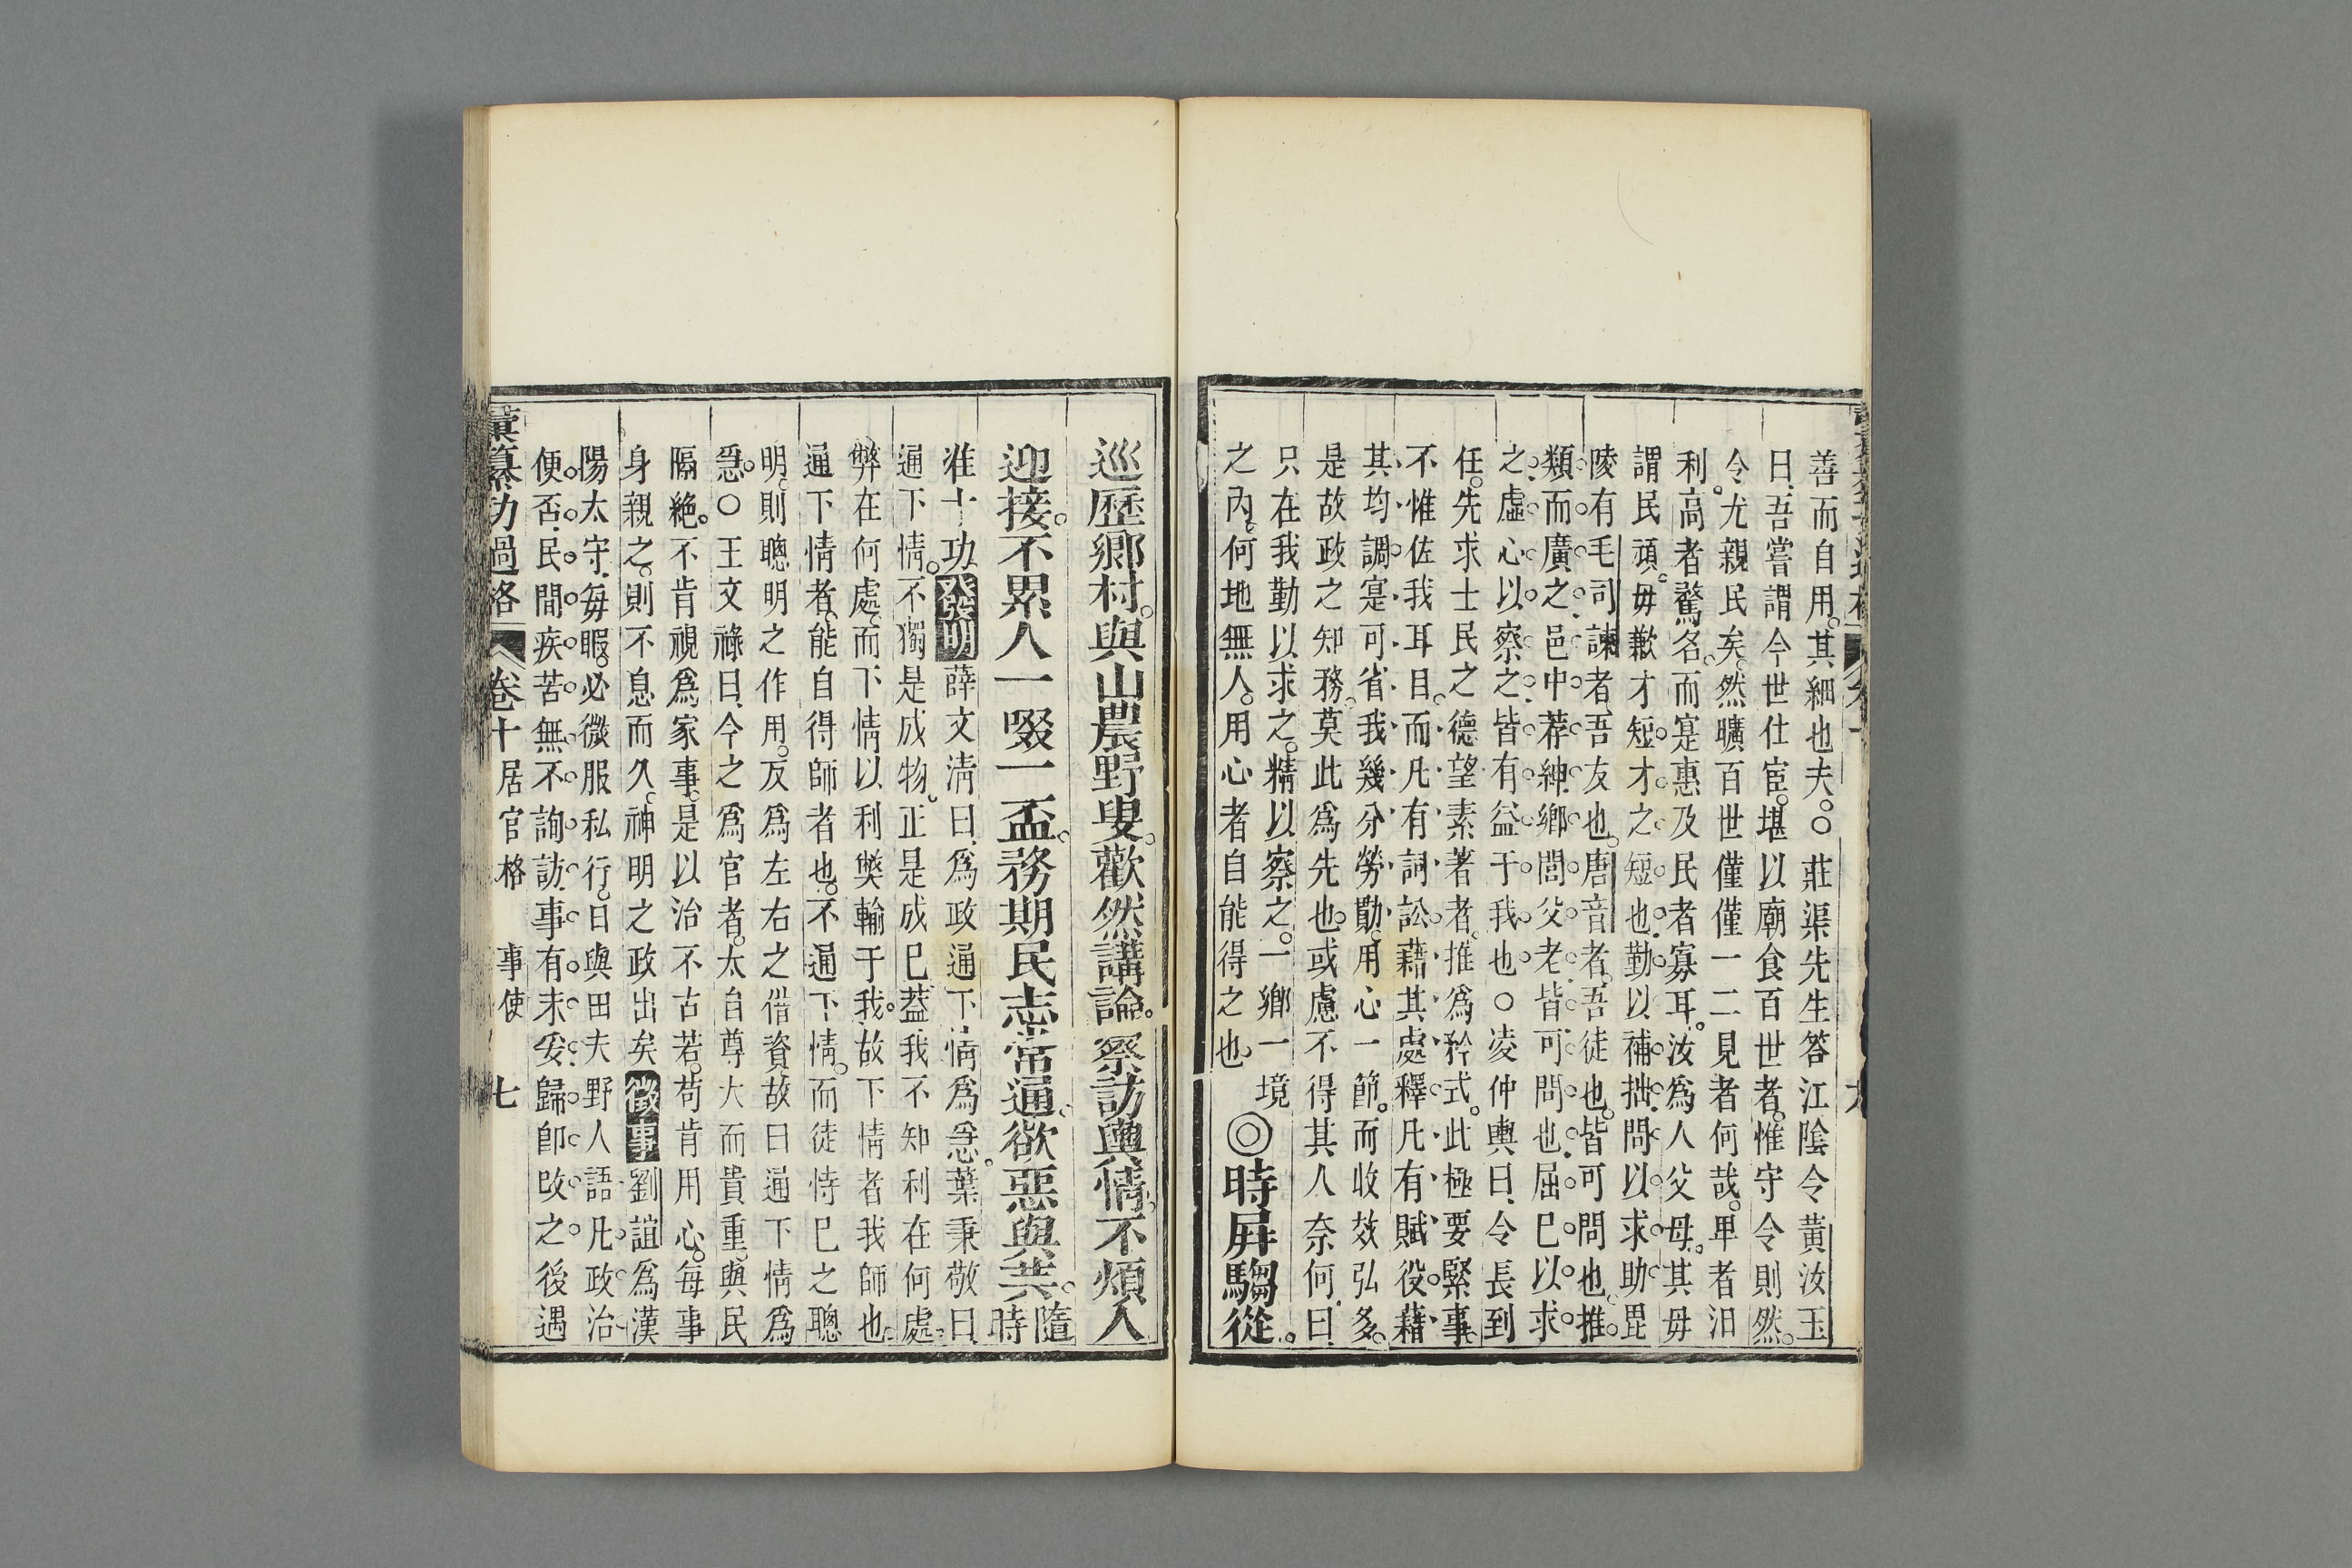 善而自用。其細也夫。○莊渠先生答江陰令黃汝玉
曰、吾嘗謂今世仕宦。堪以廟食百世者。惟守令則然。
令。尤親民矣。然曠百世僅僅一二見者何哉。卑者汨
利。高者驚名。而寔惠及民者寡耳。汝爲人父母。其毋
謂民頑。毋歉才短。才之短也。勤以補拙。問以求助。毘
陵有毛司諫者、吾友也。唐音者、吾徒也。皆可問也。推
類而廣之。邑中荐紳。鄉閭父老。皆可問也。屈已以求
之。虛心以察之。皆有益于我也。○凌仲輿曰、令長到
任。先求士民之德望素著者。推爲矜式。此極要緊事。
不惟佐我耳目。而凡有詞訟、藉其處釋。凡有賦役、藉
其均調。寔可省我幾分勞勩。用心一節。而收效弘多。
是故政之知務。莫此爲先也。或慮不得其人奈何。曰、
只在我勤以求之。精以察之。一鄉一境
之內。何地無人。用心者自能得之也。
◎時屛騶從。
巡歷鄉村。與山農野叟。歡然講論。察訪輿情。不煩人
迎接。不累人一啜一盃。務期民志常通。欲惡與共。隨時
准十功發明薛文淸曰、爲政通下情爲急。葉秉敬曰、
通下情。不獨是成物。正是成巳。葢我不知利在何處。
弊在何處。而下情以利獘輸于我。故下情者我師也。
通下情者、能自得師者也。不通下情。而徒恃巳之聰
明。則聰明之作用。反爲左右之借資。故曰通下情爲
急。○王文祿曰、今之爲官者。太自尊大而貴重。與民
隔絶。不肯視爲家事。是以治不古若。苟肯用心。每事
身親之。則不息而久。神明之政出矣徵事劉誼爲漢
陽太守、每暇。必微服私行。日與田夫野人語。凡政治
便否、民間疾苦、無不詢訪。事有未妥、歸卽改之。後遇
彙纂功過格　卷十居官格　事使　七